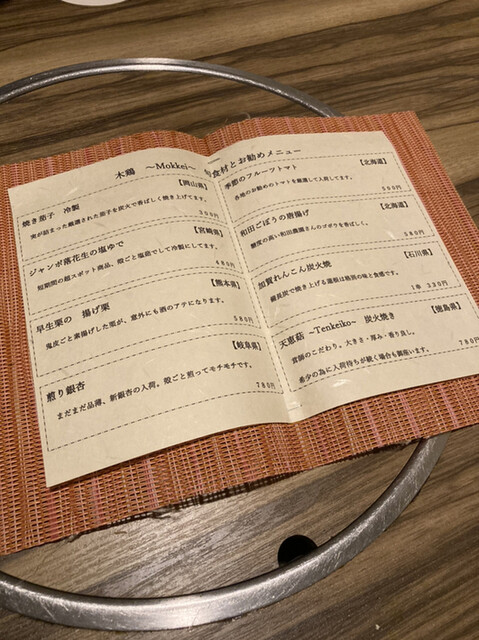 木鶏 ～Mokkei～ 旬食材とお勧めメニュー
焼き茄子 冷製 【岡山県】
実が詰まった厳選された茄子を炭火で香ばしく焼き上げてます。
300円
ジャンボ落花生の塩ゆで 【宮崎県】
短期間の超スポット商品、殻ごと塩茹でして冷製にしてます。
480円
早生栗の 揚げ栗 【熊本県】
鬼皮ごと素揚げした栗が、意外にも酒のアテになります。
580円
煎り銀杏 【岐阜県】
まだまだ品薄、新銀杏の入荷。殻ごと煎ってモチモチです。
780円
季節のフルーツトマト 【北海道】
各地のお勧めのトマトを厳選して入荷してます。
590円
和田ごぼうの唐揚げ 【北海道】
糖度の高い和田農園さんのゴボウを香ばしく。
580円
加賀れんこん炭火焼 【石川県】
備長炭で焼き上げる蓮根は格別の味と食感です。
1串 330円
天恵菇 ~Tenkeiko~ 炭火焼き 【徳島県】
菌師のこだわり。大きさ・厚み・香り良し。
希少の為に入荷待ちが続く場合も御座います。
780円